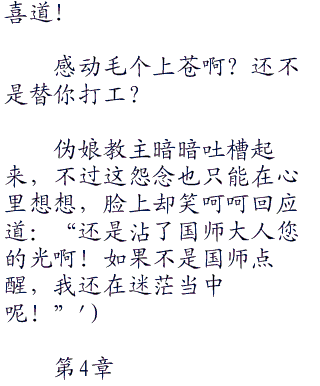 喜道！
感动毛个上苍啊？还不
是替你打工？
伪娘教主暗暗吐槽起
来，不过这怨念也只能在心
里想想，脸上却笑呵呵回应
道：“还是沾了国师大人您
的光啊！如果不是国师点
醒，我还在迷茫当中
呢！”′）
第4章